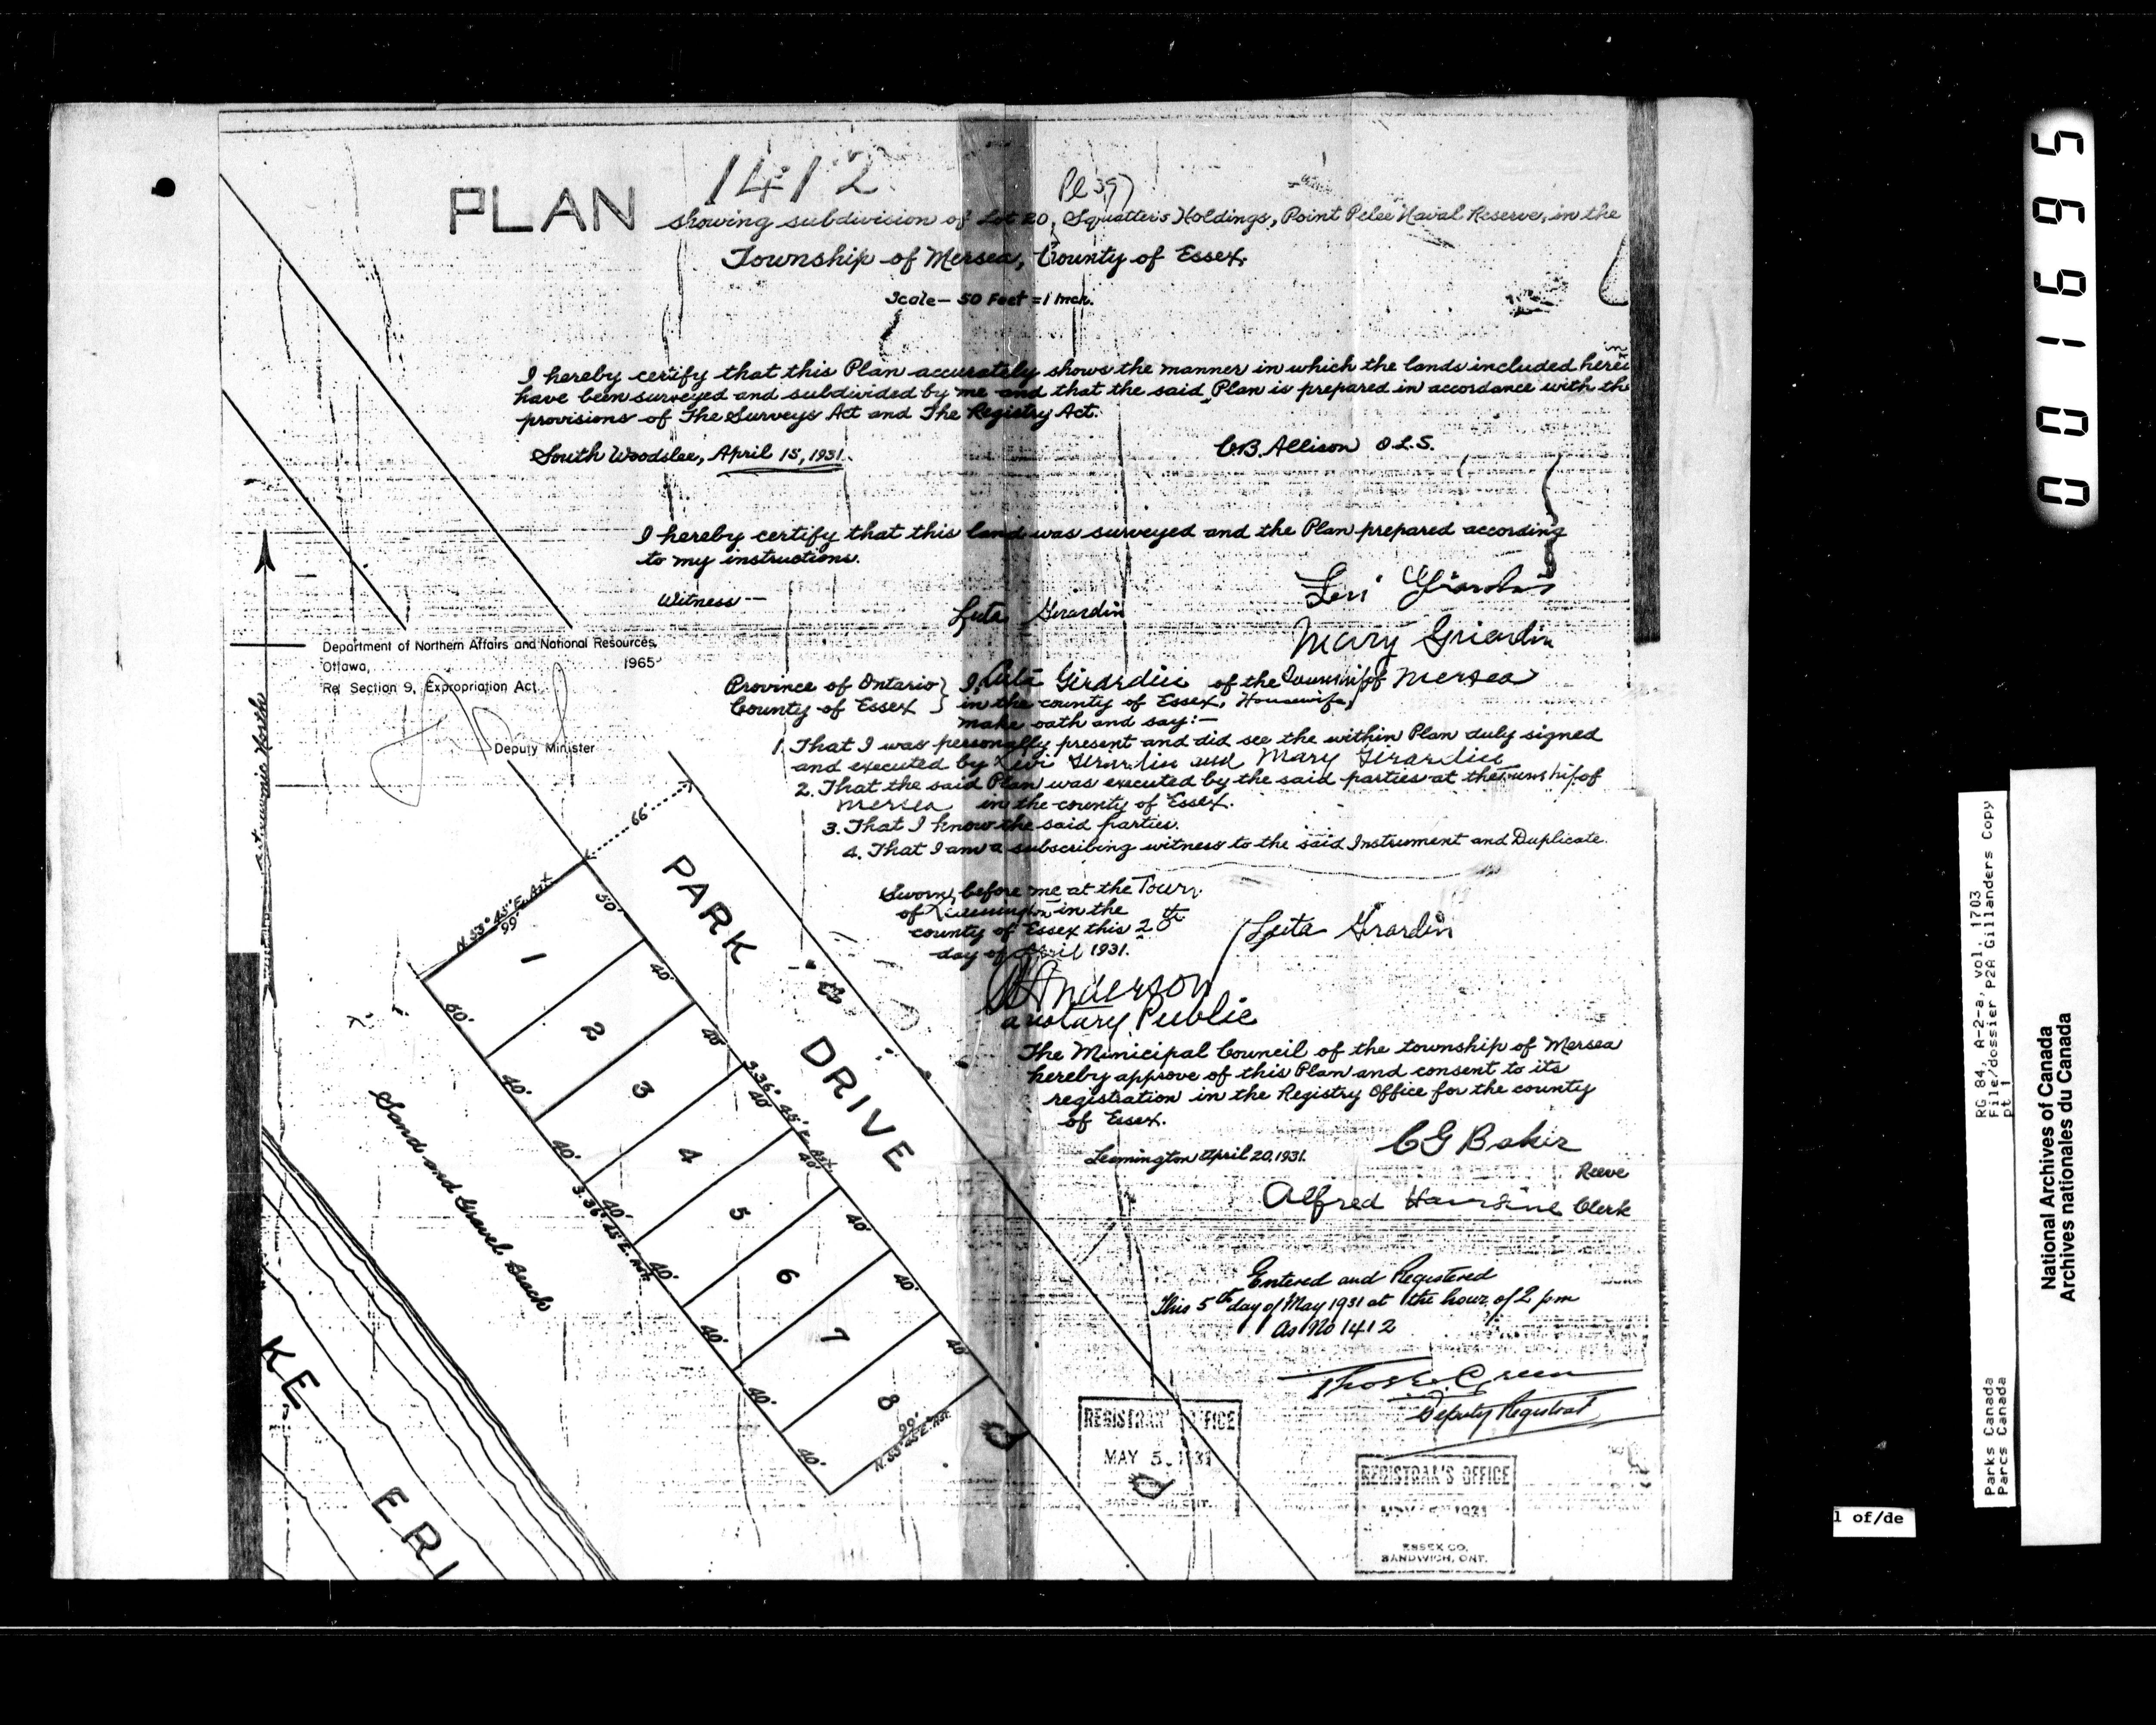 1412
Pl 397
PLAN showing subdivision of Lot 20, Squatter's Holdings, Point Pelee Naval Reserve, in the
Township of Mersea, County of Essex.
Scale - 50 Feet = 1 Inch.
in
I hereby certify that this Plan accurately shows the manner in which the lands included herei
have been surveyed and subdivided by me and that the said Plan is prepared in accordance with the
provisions of The Surveys Act and The Registry Act.
South Woodslee, April 15, 1931.
C.B. Allison O.L.S.
I hereby certify that this land was surveyed and the Plan prepared according
to my instructions.
Witness —
Leta Girardin
Levi Girardin
Mary Girardin
Department of Northern Affairs and National Resources,
Ottawa, 1965
Re: Section 9, Expropriation Act.
Deputy Minister
Astronomic North
Province of Ontario } I, Leta Girardin of the Township of Mersea
County of Essex } in the county of Essex, Housewife,
make oath and say:—
1. That I was personally present and did see the within Plan duly signed
and executed by Levi Girardin and Mary Girardin
2. That the said Plan was executed by the said parties at the Township of
Mersea in the county of Essex.
3. That I know the said parties.
4. That I am a subscribing witness to the said Instrument and Duplicate.
Sworn before me at the Town
of Leamington in the
county of Essex this 20th
day of April 1931.
Leta Girardin
Anderson
a notary Public
The Municipal Council of the township of Mersea
hereby approve of this Plan and consent to its
registration in the Registry Office for the county
of Essex.
Leamington April 20, 1931.
C G Baker
Reeve
Alfred Hairsine Clerk
Entered and Registered
This 5th day of May 1931 at the hour of 2 pm
As No 1412
Thos E. Green
Deputy Registrar
REGISTRAR'S OFFICE
MAY 5 - 1931
REGISTRAR'S OFFICE
MAY 5 1931
ESSEX CO.
SANDWICH, ONT.
66'
PARK DRIVE
N 53° 45' E. Ast.
99'
50'
40'
40'
S. 36° 45' E. Ast.
40'
40'
40'
40'
40'
1
2
3
4
5
6
7
8
50'
40'
40'
40'
S. 36° 45' E. Ast.
40'
40'
40'
40'
99'
N. 53° 45' E. Ast.
Sand and Gravel Beach
KE
ERI
001695
RG 84, A-2-a, vol. 1703
File/dossier P2A Gillanders Copy
pt 1
Parks Canada
Parcs Canada
National Archives of Canada
Archives nationales du Canada
1 of/de